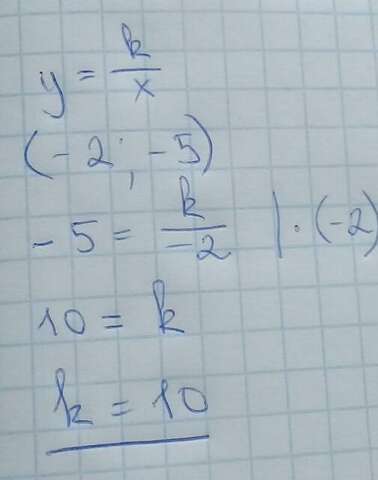 y = k/x
(-2; -5)
-5 = k/-2 | · (-2)
10 = k
k = 10